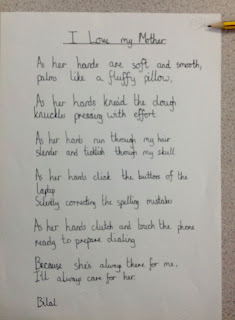 I Love my Mother.
As her hands are soft and smooth,
palms like a fluffy pillow,
As her hands kneid the dough
knuckles pressing with effort
As her hands run through my hair
slender and ticklish through my skull
As her hands click the buttons of the
laptop
Silently correcting the spelling mistakes
As her hands clutch and touch the phone
ready to prepare dialing
Because she's always there for me.
I'll always care for her.
Bilal